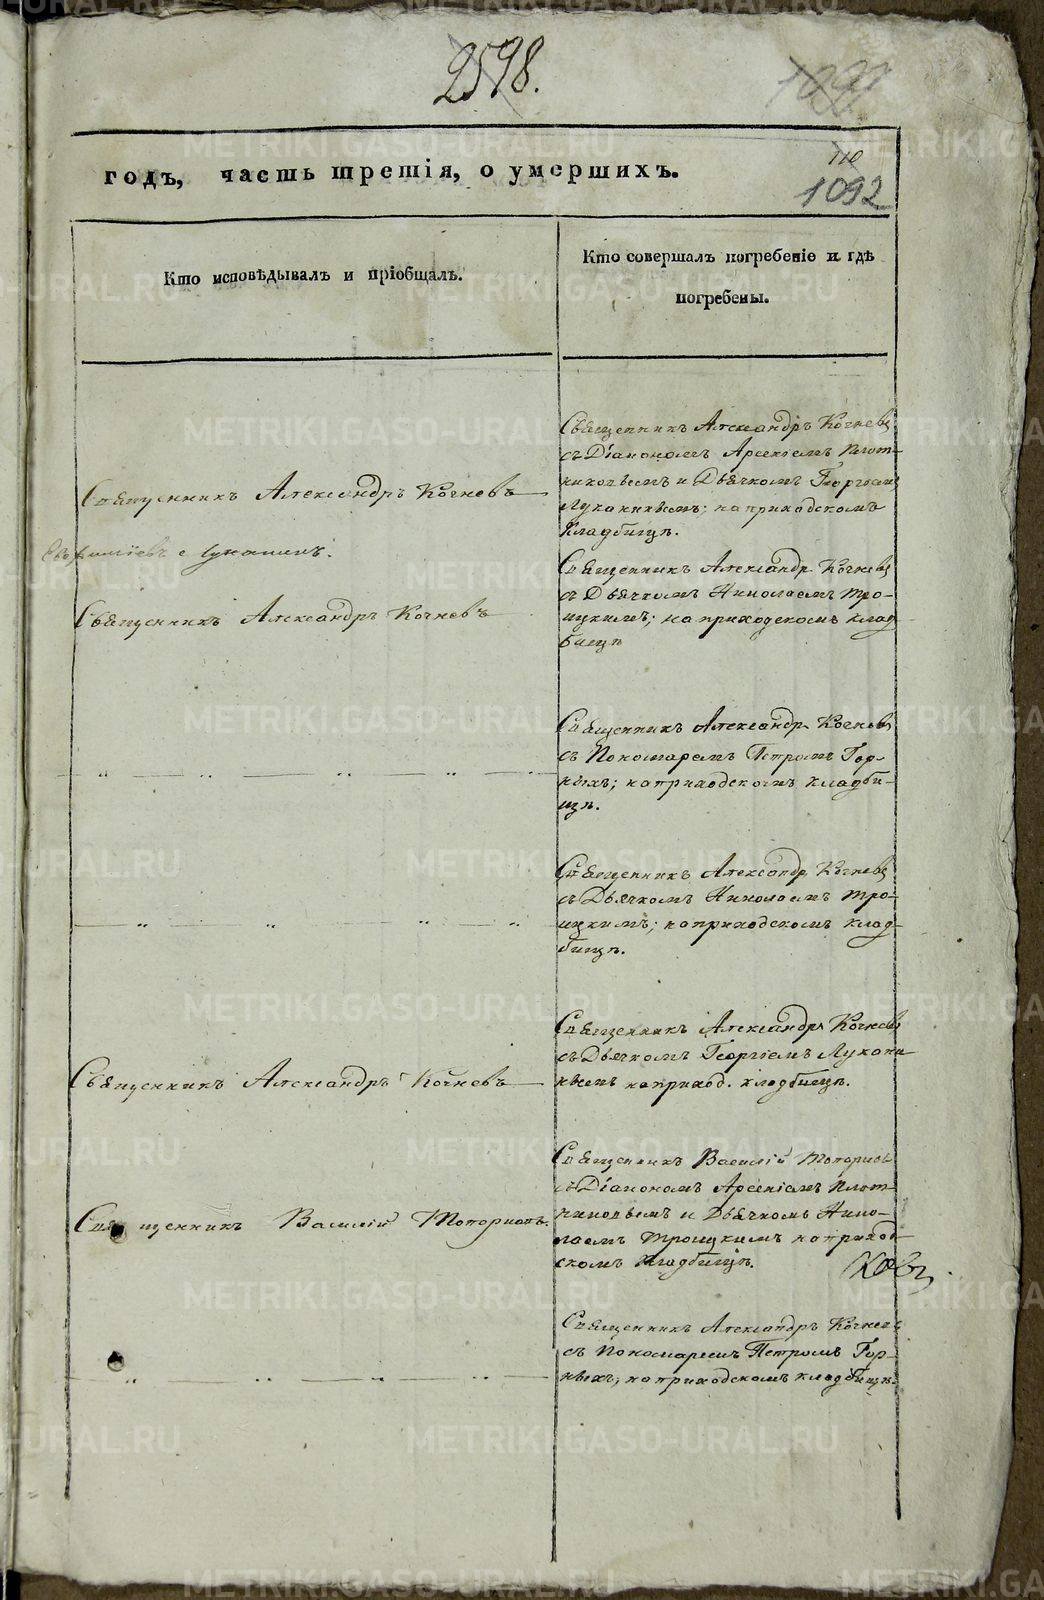 2598.
1091
110
1092
годъ, часть третія, о умершихъ.
Кто исповѣдывалъ и пріобщалъ.
Кто совершалъ погребеніе и гдѣ
погребены.
Священникъ Александръ Кочневъ
Священникъ Александръ Кочневъ
съ Діакономъ Арсеніемъ Плот-
никовымъ и Дьячкомъ Георгіемъ
Луканинымъ; на приходскомъ
кладбищѣ.
Священникъ Александръ Кочневъ
Священникъ Александръ Кочневъ
съ Дьячкомъ Николаемъ Тро-
ицкимъ; на приходскомъ клад-
бищѣ
Священникъ Александръ Кочневъ
съ Пономаремъ Петромъ Гор-
ныхъ; на приходскомъ кладби-
щѣ.
Священникъ Александръ Кочневъ
съ Дьячкомъ Николаемъ Тро-
ицкимъ; на приходскомъ клад-
бищѣ.
Священникъ Александръ Кочневъ
Священникъ Александръ Кочневъ
съ Дьячкомъ Георгіемъ Лукани
нымъ на приход. кладбищѣ.
Священникъ Василій Топорковъ.
Священникъ Василій Топорковъ
съ Діакономъ Арсеніемъ Плот-
никовымъ и Дьячкомъ Нико-
лаемъ Троицкимъ на приход-
скомъ кладбищѣ.
Священникъ Александръ Кочневъ
съ Пономаремъ Петромъ Гор-
ныхъ; на приходскомъ кладбищѣ.
METRIKI.GASO-URAL.RU